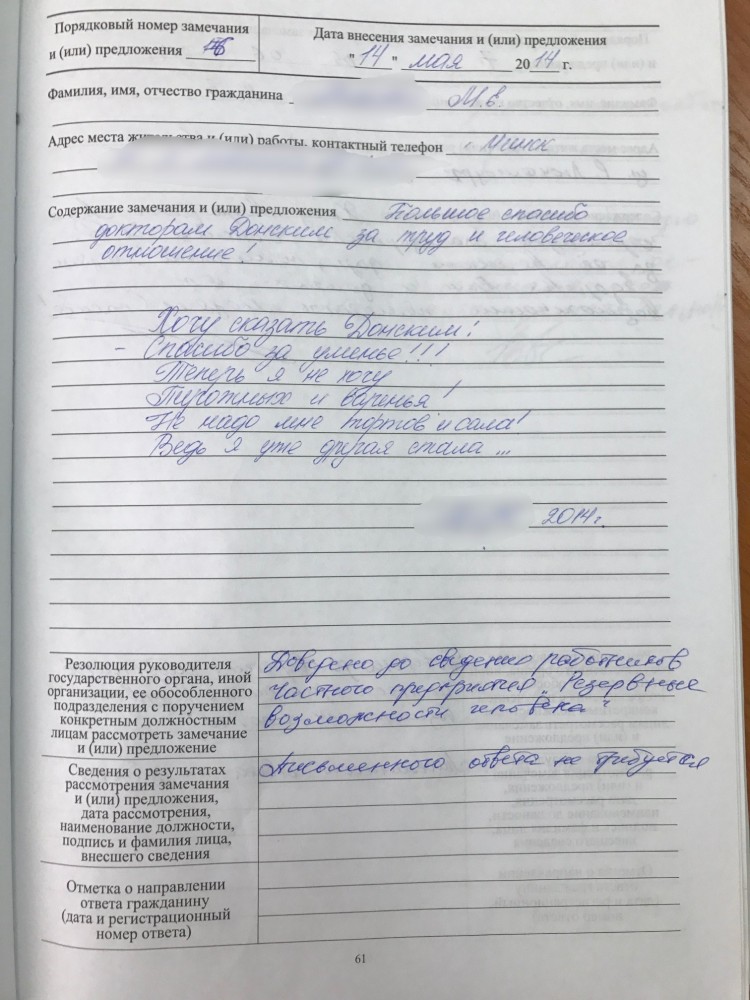 Порядковый номер замечания
и (или) предложения
Дата внесения замечания и (или) предложения
"14" мая 2014 г.
Фамилия, имя, отчество гражданина М.Е.
Адрес места жительства и (или) работы, контактный телефон г. Минск
Содержание замечания и (или) предложения Большое спасибо
докторам Донским за труд и человеческое
отношение!
Хочу сказать Донским:
- Спасибо за уменье!!!
Теперь я не хочу
Тушёнки и варенья!
Не надо мне тортов и сала!
Ведь я уже другая стала...
2014г.
Резолюция руководителя
государственного органа, иной
организации, ее обособленного
подразделения с поручением
конкретным должностным
лицам рассмотреть замечание
и (или) предложение
Доведено до сведению работников
Частного предприятия „Резервные
возможности человека"
Сведения о результатах
рассмотрения замечания
и (или) предложения,
дата рассмотрения,
наименование должности,
подпись и фамилия лица,
внесшего сведения
Письменного ответа не требуется
Отметка о направлении
ответа гражданину
(дата и регистрационный
номер ответа)
61